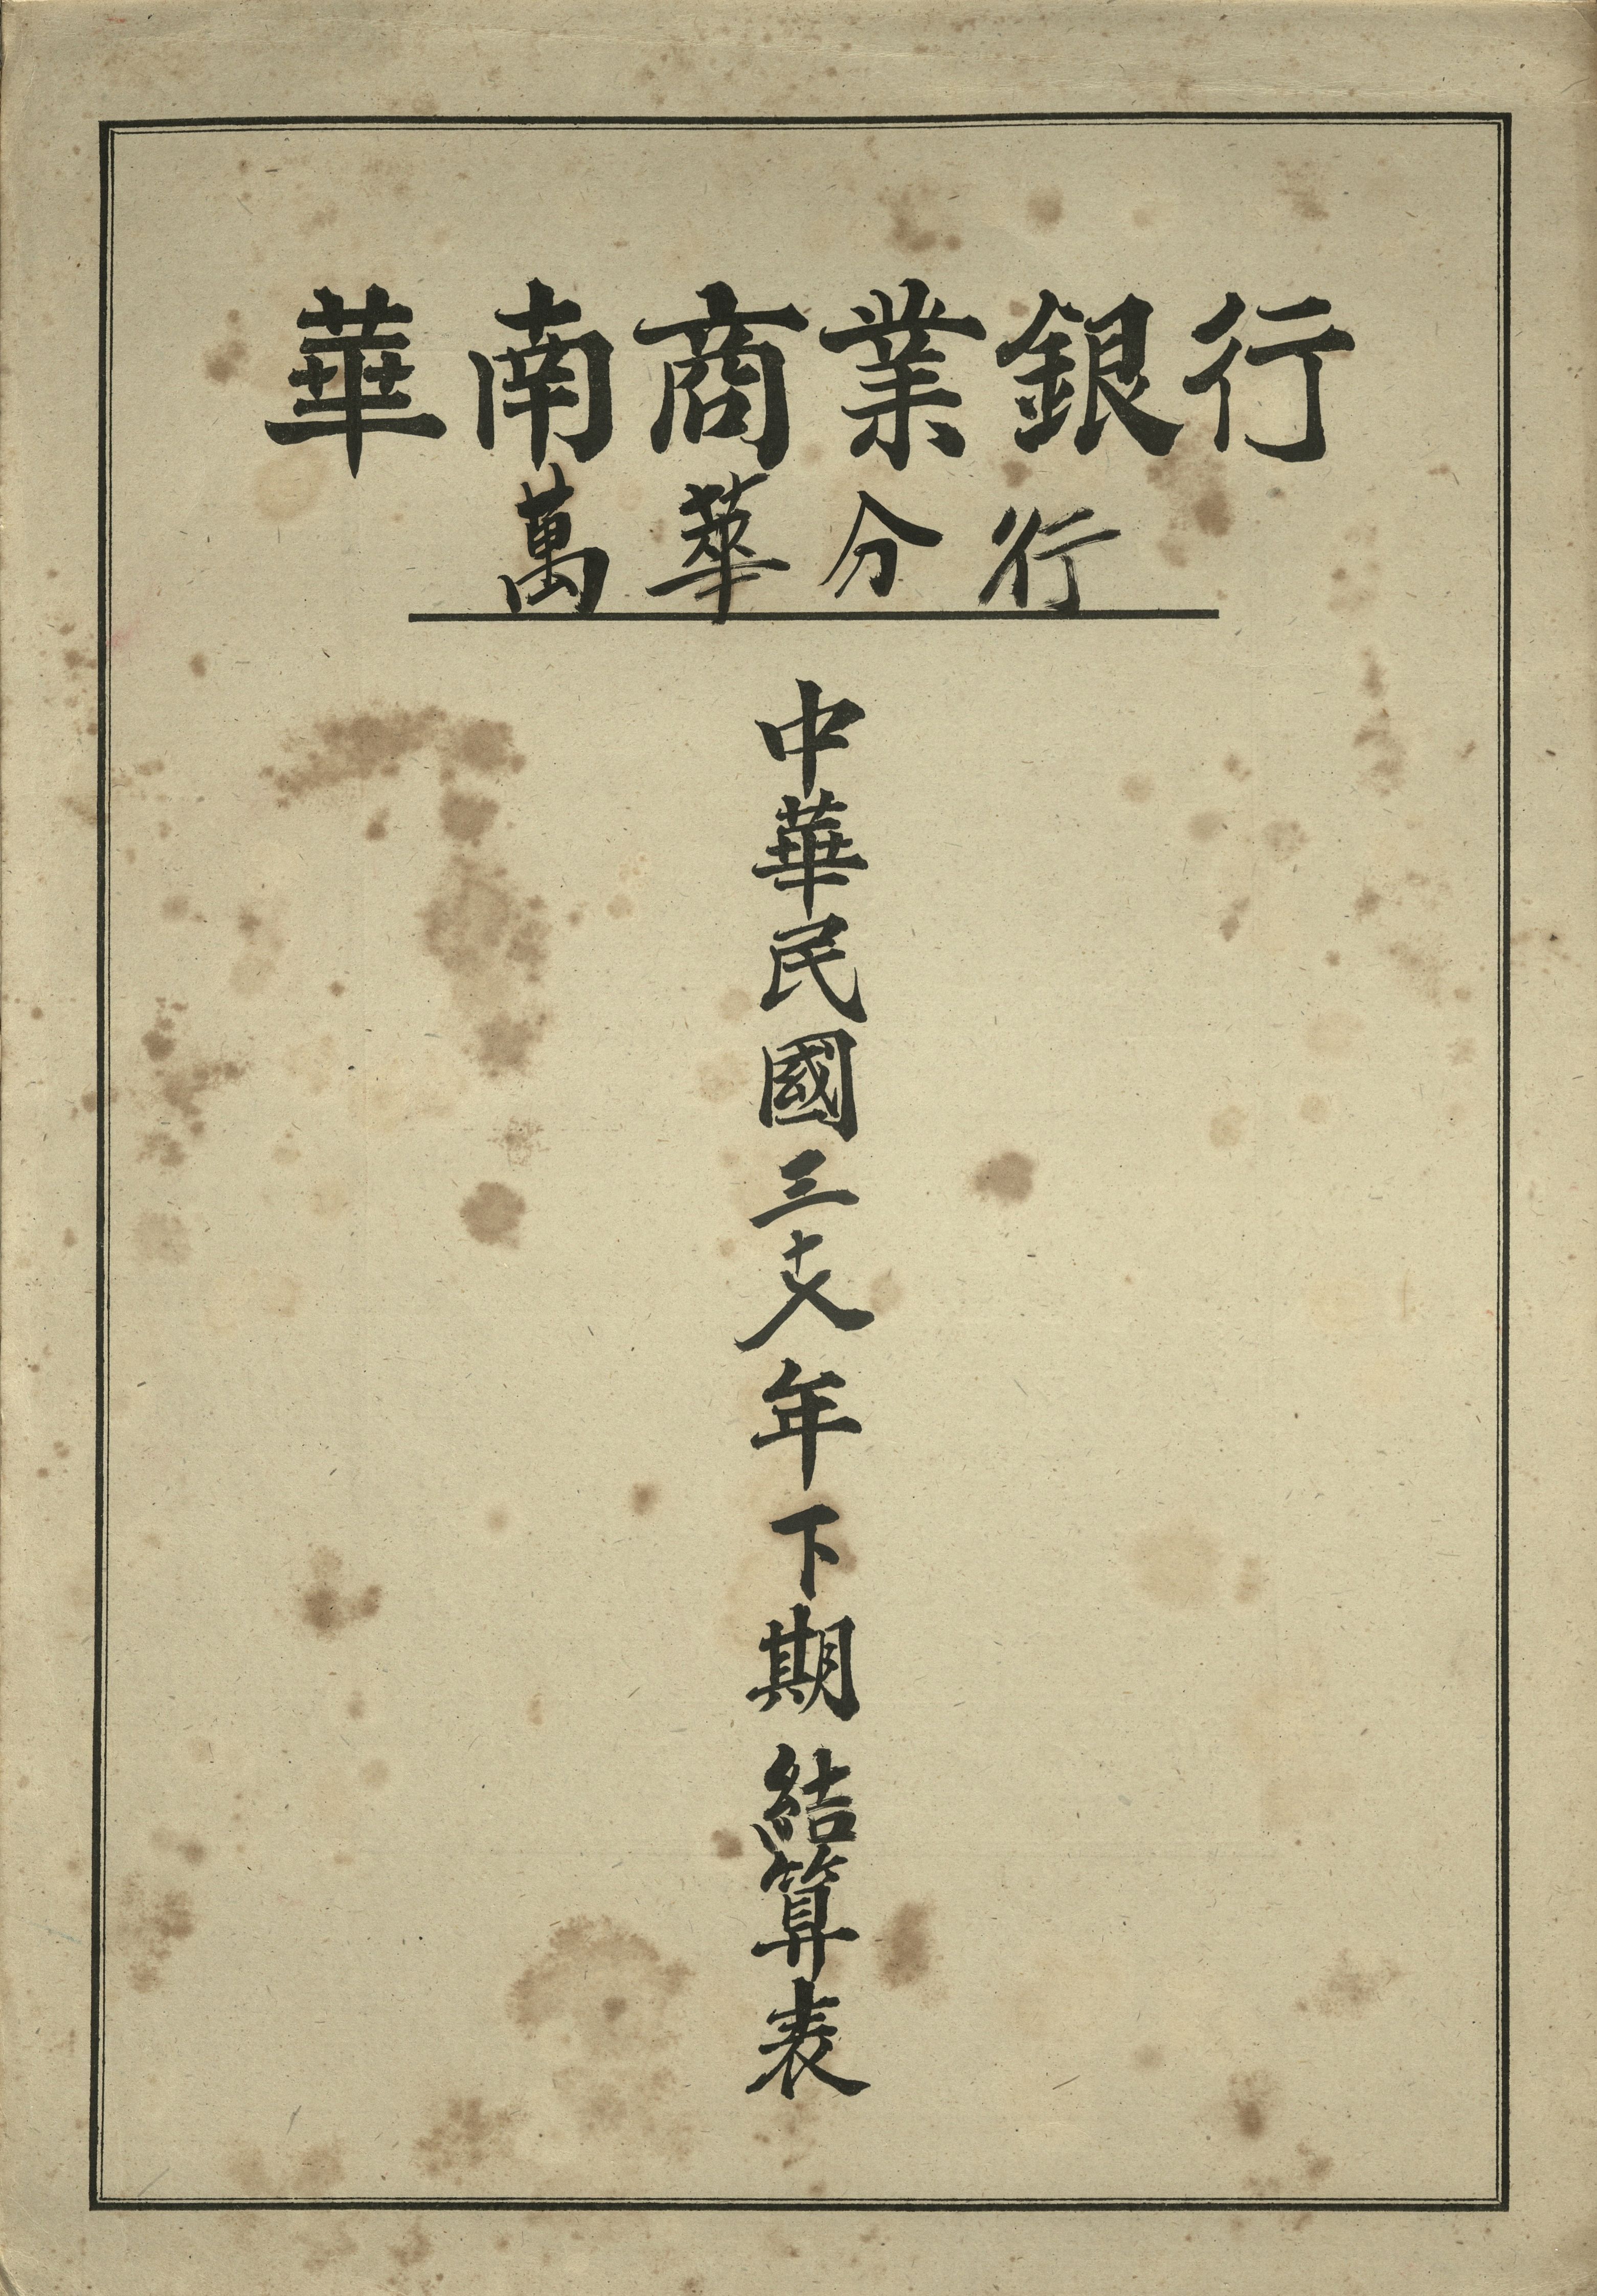 華南商業銀行
萬華分行
中華民國三十八年下期結算表